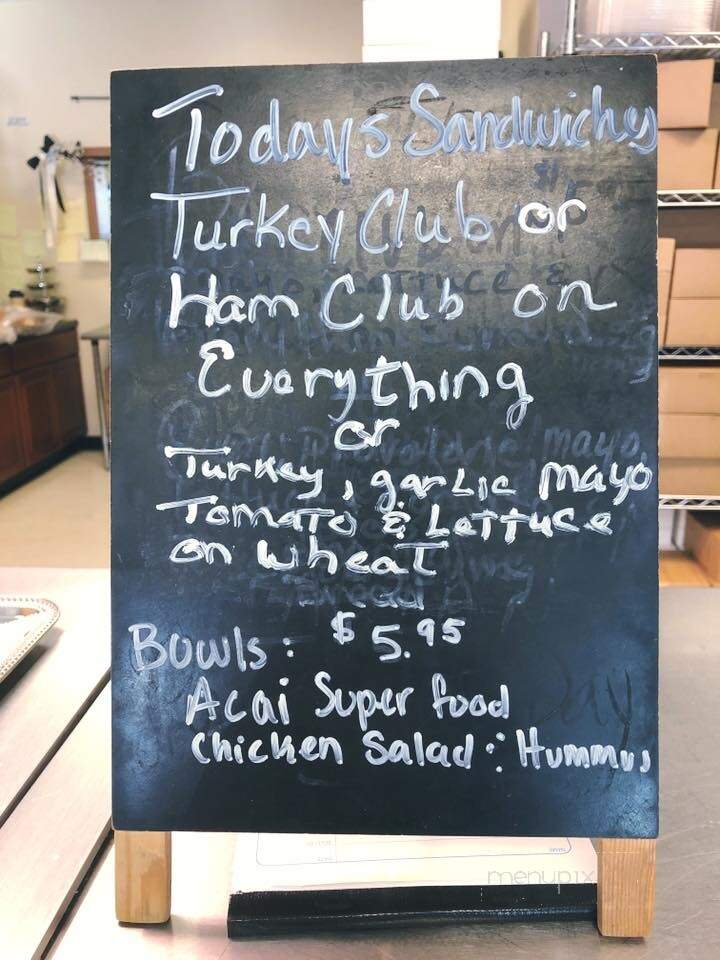 Todays Sandwiches
Turkey Club or
Ham Club on
Everything
or
Turkey, garlic mayo
Tomato & Lettuce
on wheat
Bowls: $5.95
Acai Super food
Chicken Salad & Hummus
menupix